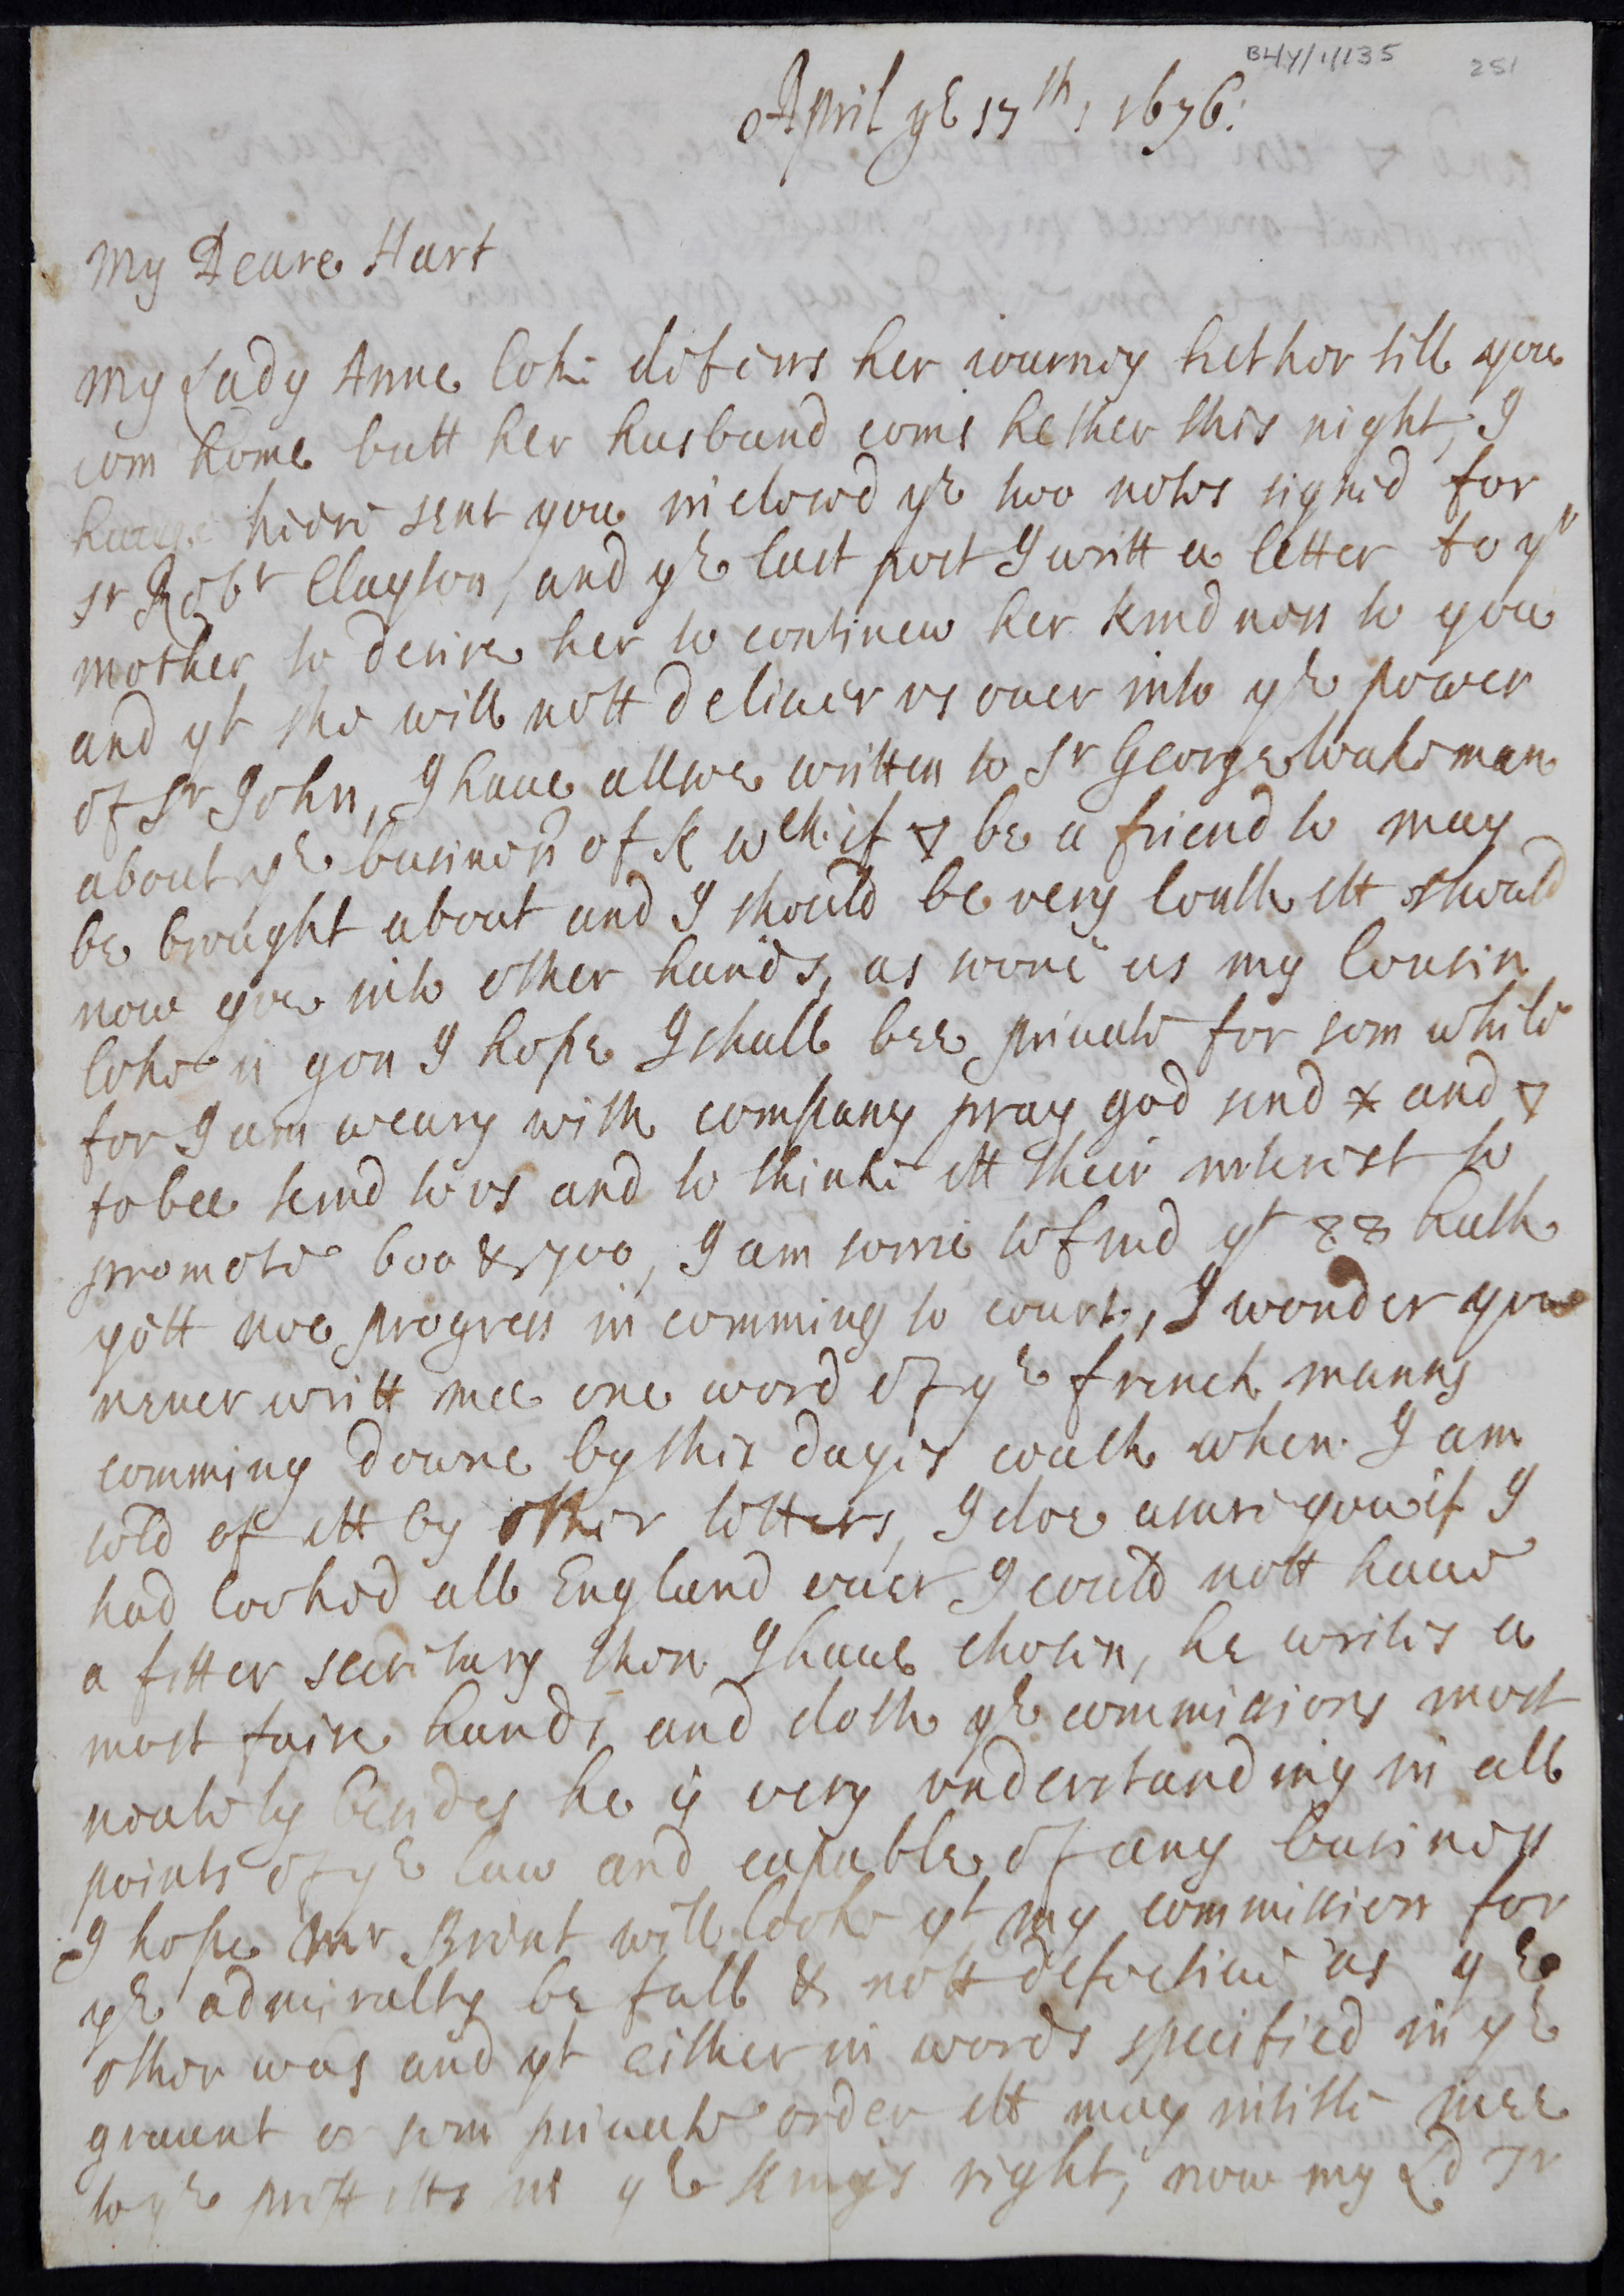 BHY/1/135 251
April ye 17th, 1676:
My Deare Hart
My Lady Anne Coke defers her iourney hether till you
com home butt her husband coms hether this night, I
haue heere sent you inclosed ye two notes signed for
Sr Robt Clayton, and ye last post I writt a letter to yr
mother to desire her to continew her kindness to you
and yt she will nott deliuer vs ouer into ye power
of Sr John, I haue allsoe written to Sr George Wakeman
about ye business of K wch if ∇ be a friend to may
be brought about and I should be very loath itt should
now goe into other hands, as soone as my Cousin
Coke is gon I hope I shall bee priuate for som while
for I am weary with company pray god send x and ∇
to bee kind to vs and to thinke itt their interest to
promote 600 & 700, I am sorrie to find yt 88 hath
gott noe progress in comming to court, I wonder you
neuer writt mee one word of ye french manns
comming downe by this dayes coach when I am
told of itt by other letters, I doe assure you if I
had looked all England ouer I could nott haue
a fitter secretary then I haue chosen, he writes a
most faire hand, and doth ye commissions most
neately besides he is very vnderstanding in all
points of ye law and capable of any business
I hope Mr Brent will looke yt my commission for
ye admiralty be full & nott defectiue as ye
other was and yt either in words specified in ye
graunt or som priuate order itt may intitle mee
to ye profitts in ye Kings right, now my Ld Tr